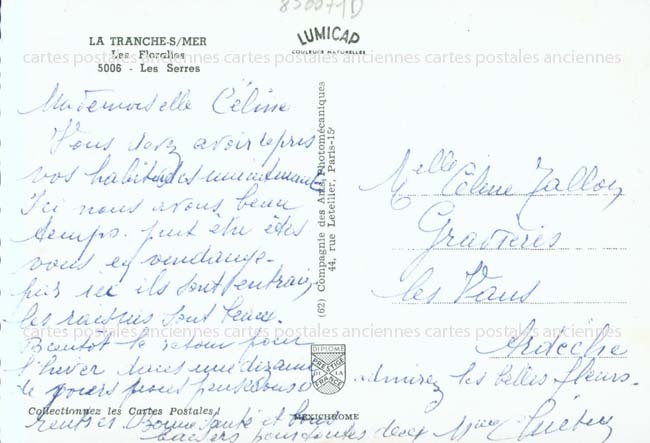 850071D
LA TRANCHE-S/MER
Les Floralies
5006 - Les Serres
LUMICAP
COULEURS NATURELLES
cartes postales anciennes cartes postales anciennes cartes postales anciennes
Mademoiselle Céline
Vous devez avoir repris
vos habitudes maintenant
Ici nous avons beau
temps. peut etre êtes
vous en vendange.
par ici ils sont entrain,
les raisins sont
Bientot le retour pour
l'hiver dans une dizaine
de jours nous pensons
rentrer. Bonne santé et bons
baisers pour toutes deux Mme
(62) Compagnie des Arts Photomécaniques
44, rue Letellier, Paris-15e
Melle Céline
Gravières
les Vans
Ardèche
cartes postales anciennes cartes postales anciennes cartes postales anciennes
admirez les belles fleurs.
DIPLOME
PRESTIGE
DE LA
FRANCE
MEXICHROME
Collectionnez les Cartes Postales !